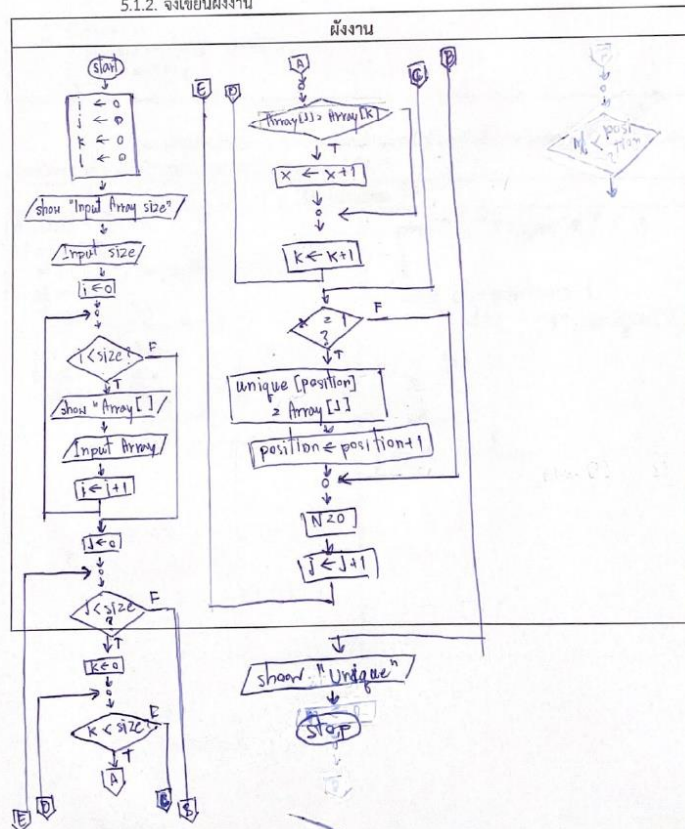 5.1.2. จงเขียนผังงาน
ผังงาน
start
i ← 0
j ← 0
k ← 0
l ← 0
show "Input Array size"
Input size
i ← 0
i < size?
F
T
show "Array[ ]
Input Array
i ← i+1
J ← 0
J < size
?
F
T
k ← 0
k < size?
F
T
A
E
D
E
D
A
C
B
Array[J] = Array[k]
T
x ← x+1
k ← k+1
x = 1
?
F
T
unique [position]
= Array[J]
position ← position+1
N = 0
j ← J+1
show "Unique"
stop